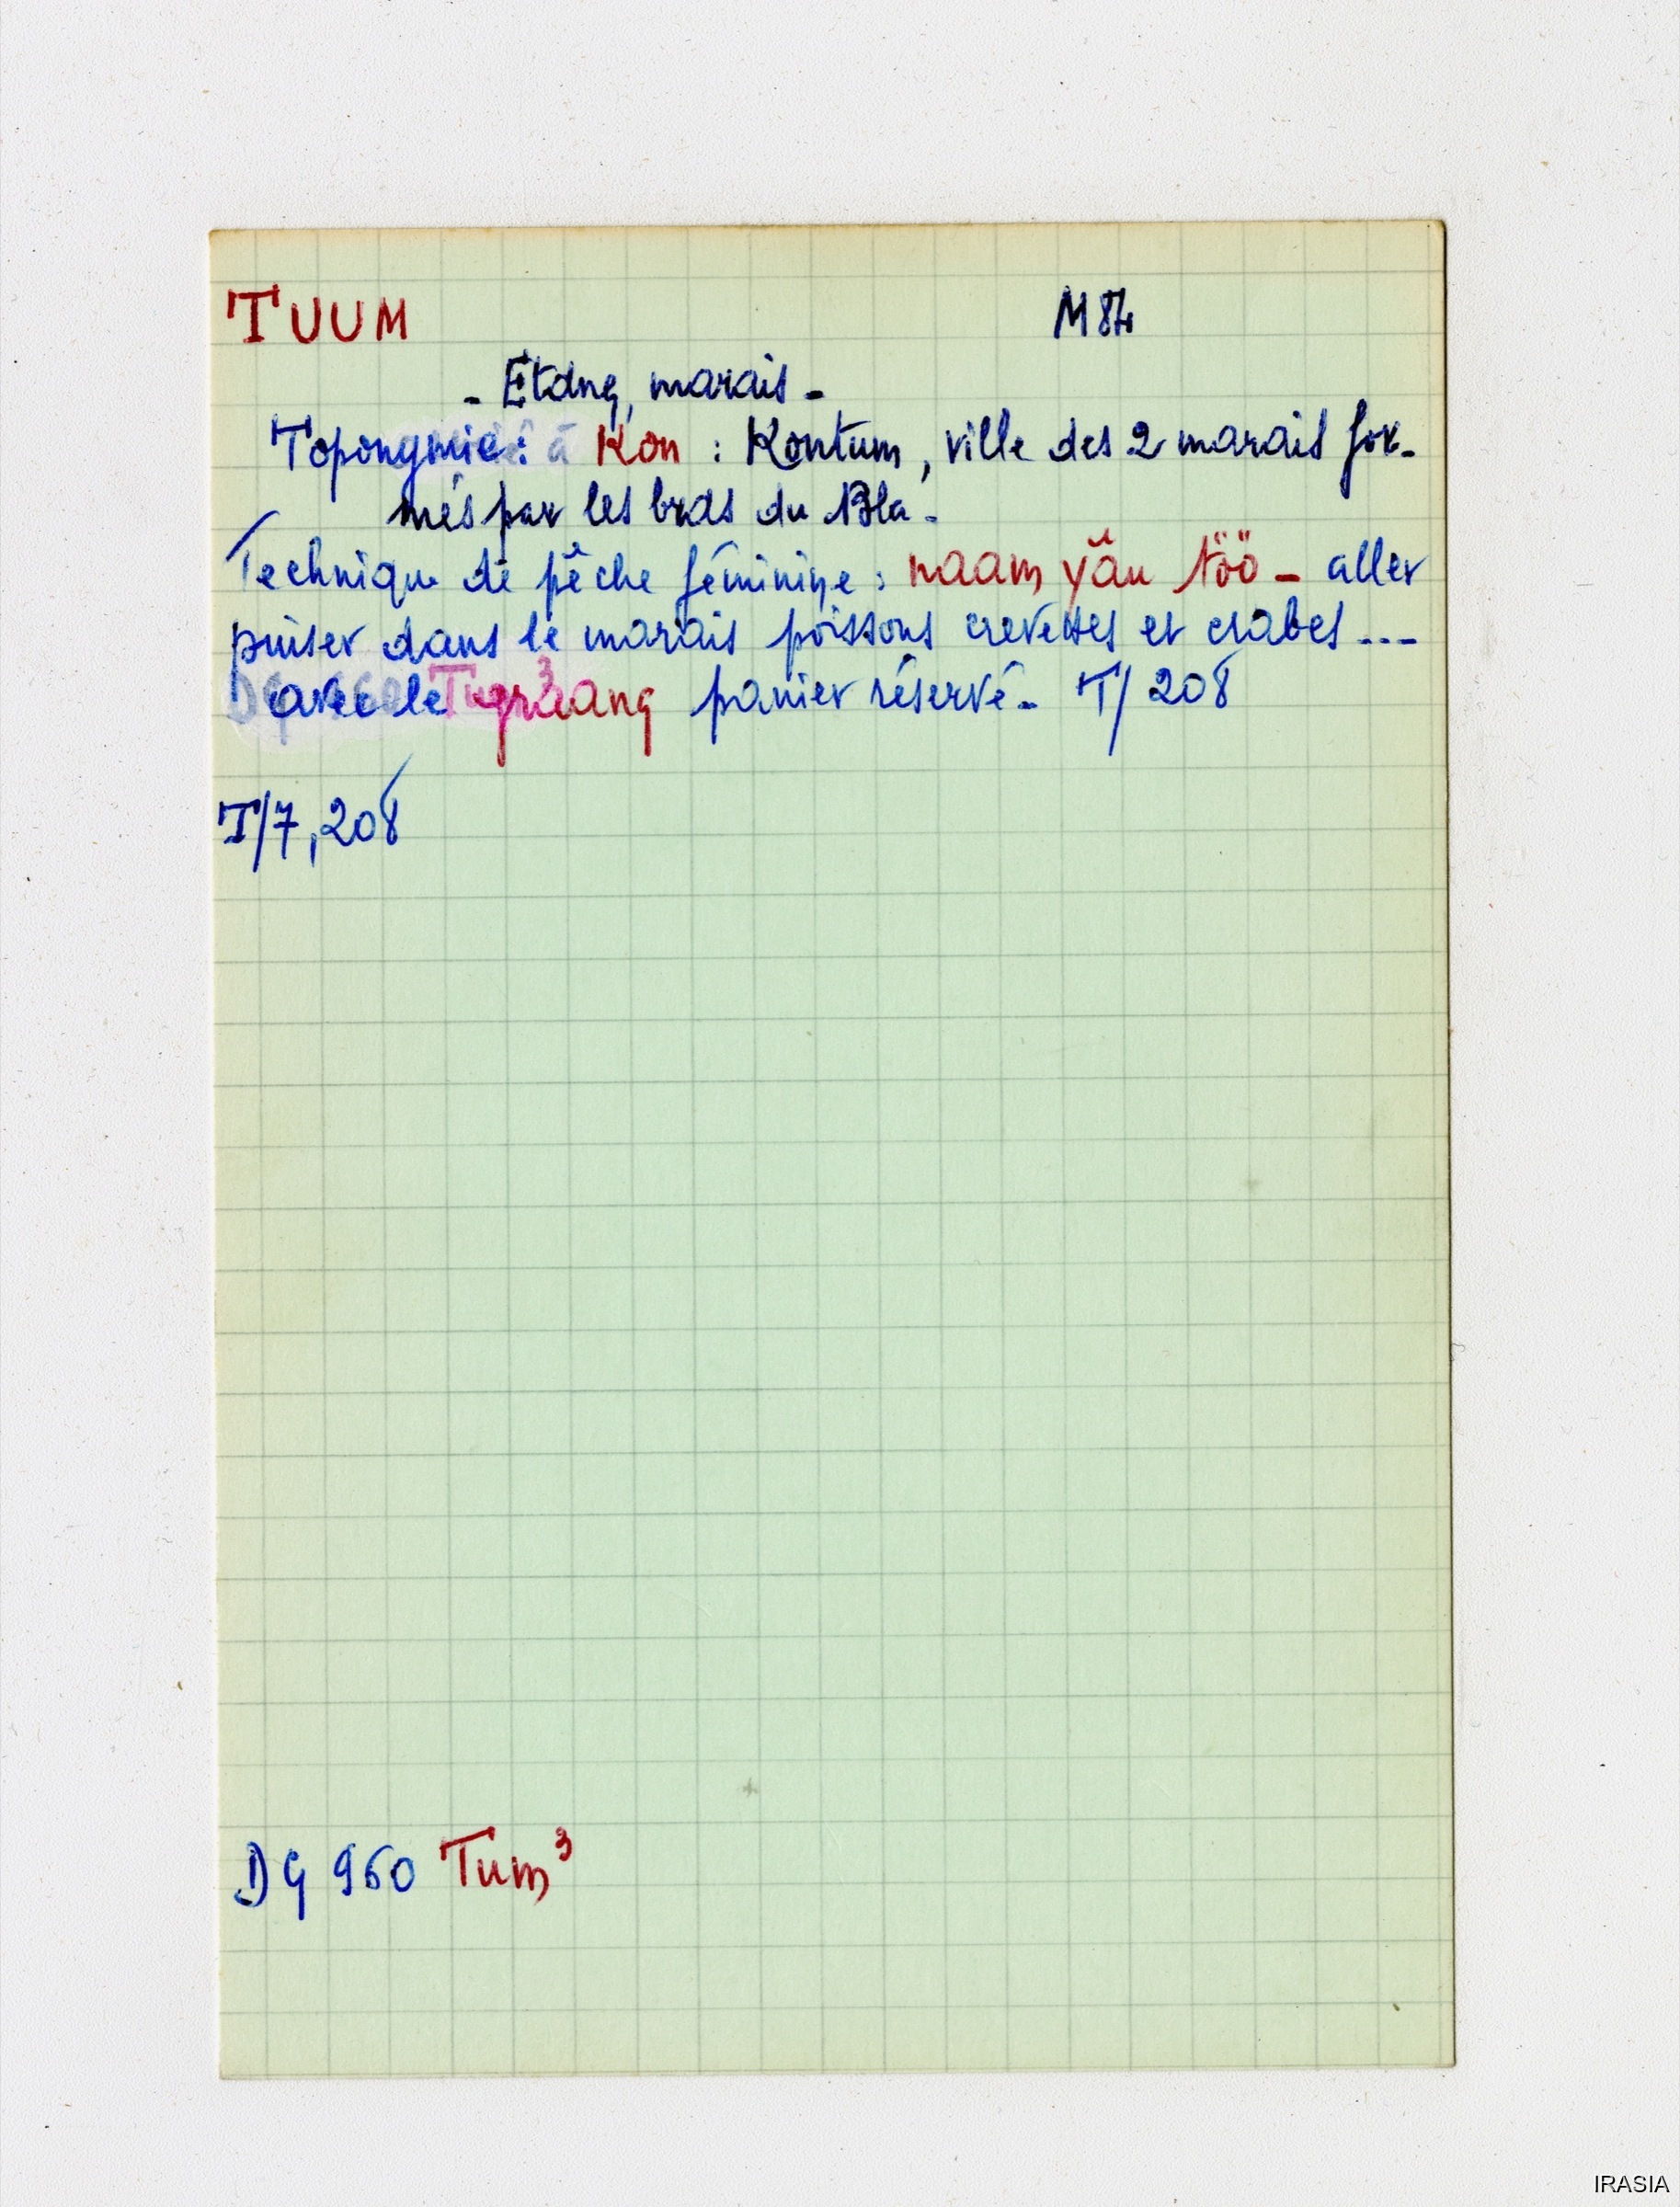 TUUM M 84
- Etang, marais -
Toponymie: à Kon : Kontum, ville des 2 marais for-
més par les bras du Bla.
Technique de pêche féminine : naam yâu töö - aller
puiser dans le marais poissons crevettes et crabes ---
avec le panier réservé - T/ 208
T/7, 208
DG 960 Tum³
IRASIA